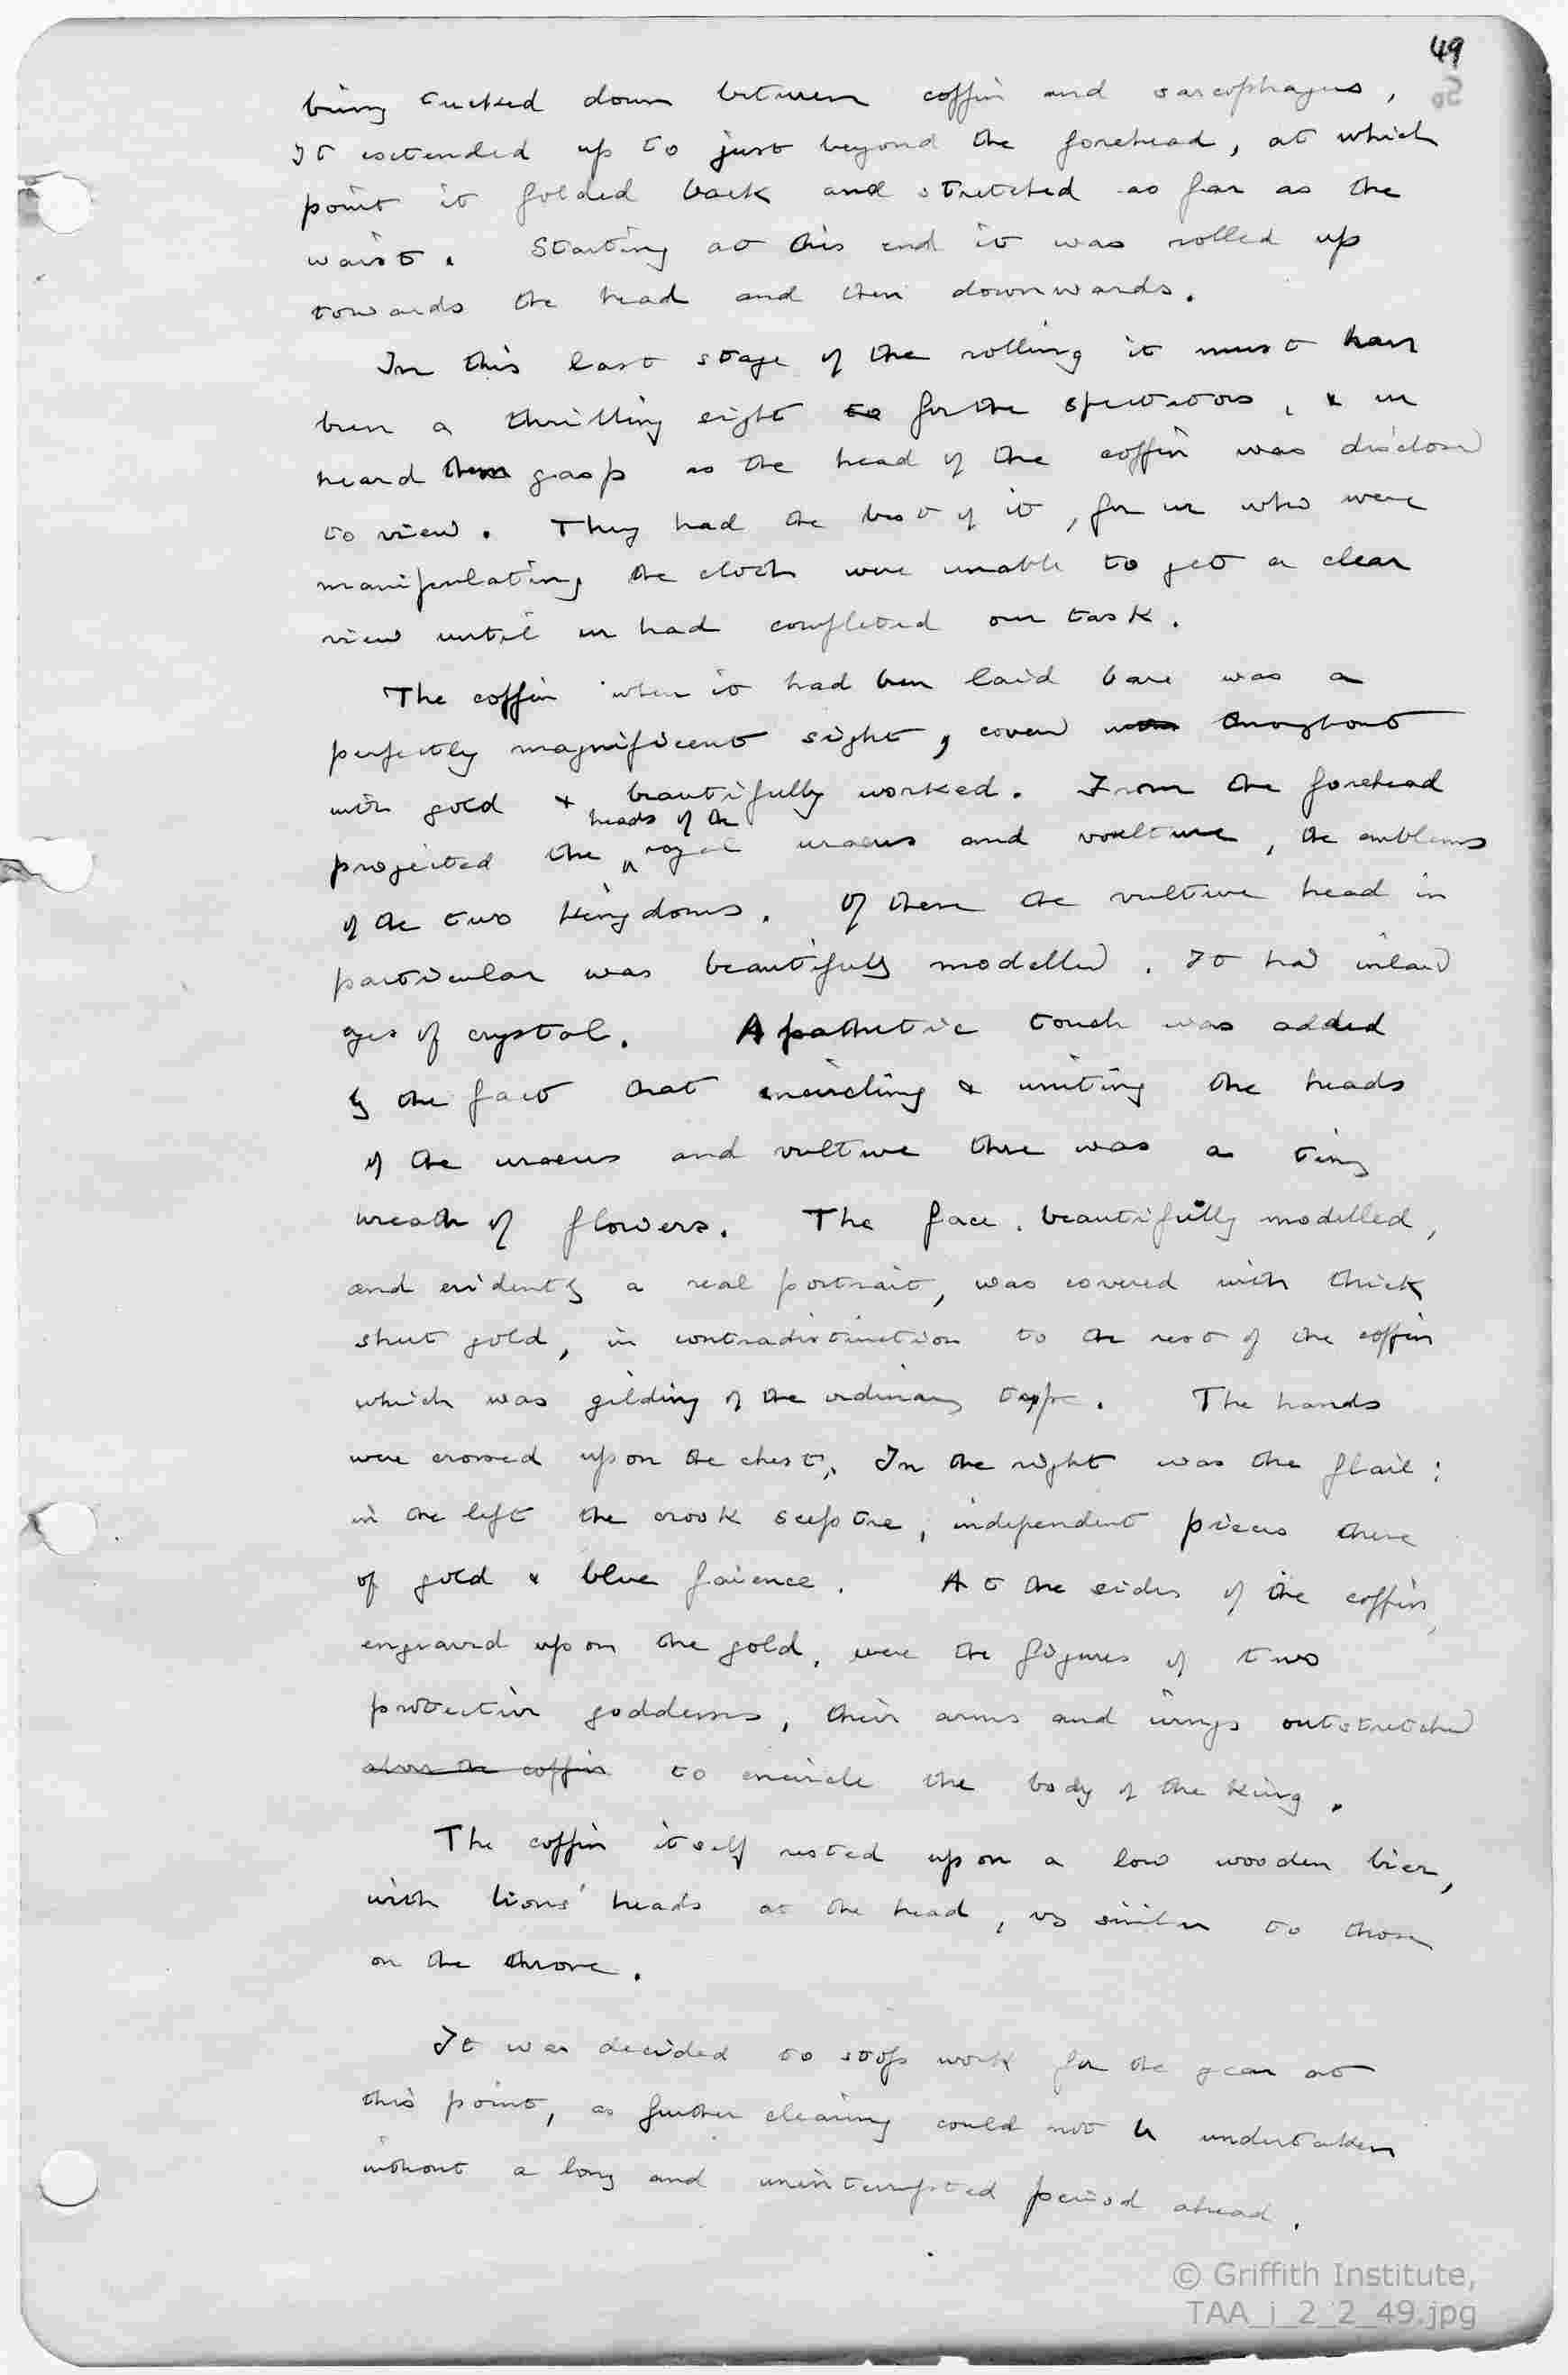 49
50
being tucked down between coffin and sarcophagus,
It extended up to just beyond the forehead, at which
point it folded back and stretched as far as the
waist. Starting at this end it was rolled up
towards the head and then downwards.
In this last stage of the rolling it must have
been a thrilling sight to for the spectators, & we
heard them gasp as the head of the coffin was disclosed
to view. They had the best of it, for we who were
manipulating the cloth were unable to get a clear
view until we had completed our task.
The coffin when it had been laid bare was a
perfectly magnificent sight, covered with throughout
with gold & beautifully worked. From the forehead
heads of the
projected the royal uraeus and vulture, the emblems
of the two kingdoms. Of these the vulture head in
particular was beautifully modelled. It had inlaid
eyes of crystal. A pathetic touch was added
by the fact that encircling & uniting the heads
of the uraeus and vulture there was a tiny
wreath of flowers. The face, beautifully modelled,
and evidently a real portrait, was covered with thick
sheet gold, in contradistinction to the rest of the coffin
which was gilding of the ordinary type. The hands
were crossed upon the chest. In the right was the flail:
in the left the crook sceptre, independent pieces these
of gold & blue faience. At the sides of the coffin,
engraved upon the gold, were the figures of two
protective goddesses, their arms and wings outstretched
above the coffin to encircle the body of the King.
The coffin itself rested upon a low wooden bier,
with lions' heads at the head, vy similar to those
on the throne.
It was decided to stop work for the year at
this point, as further clearing could not be undertaken
without a long and uninterrupted period ahead.
© Griffith Institute,
TAA_i_2_2_49.jpg